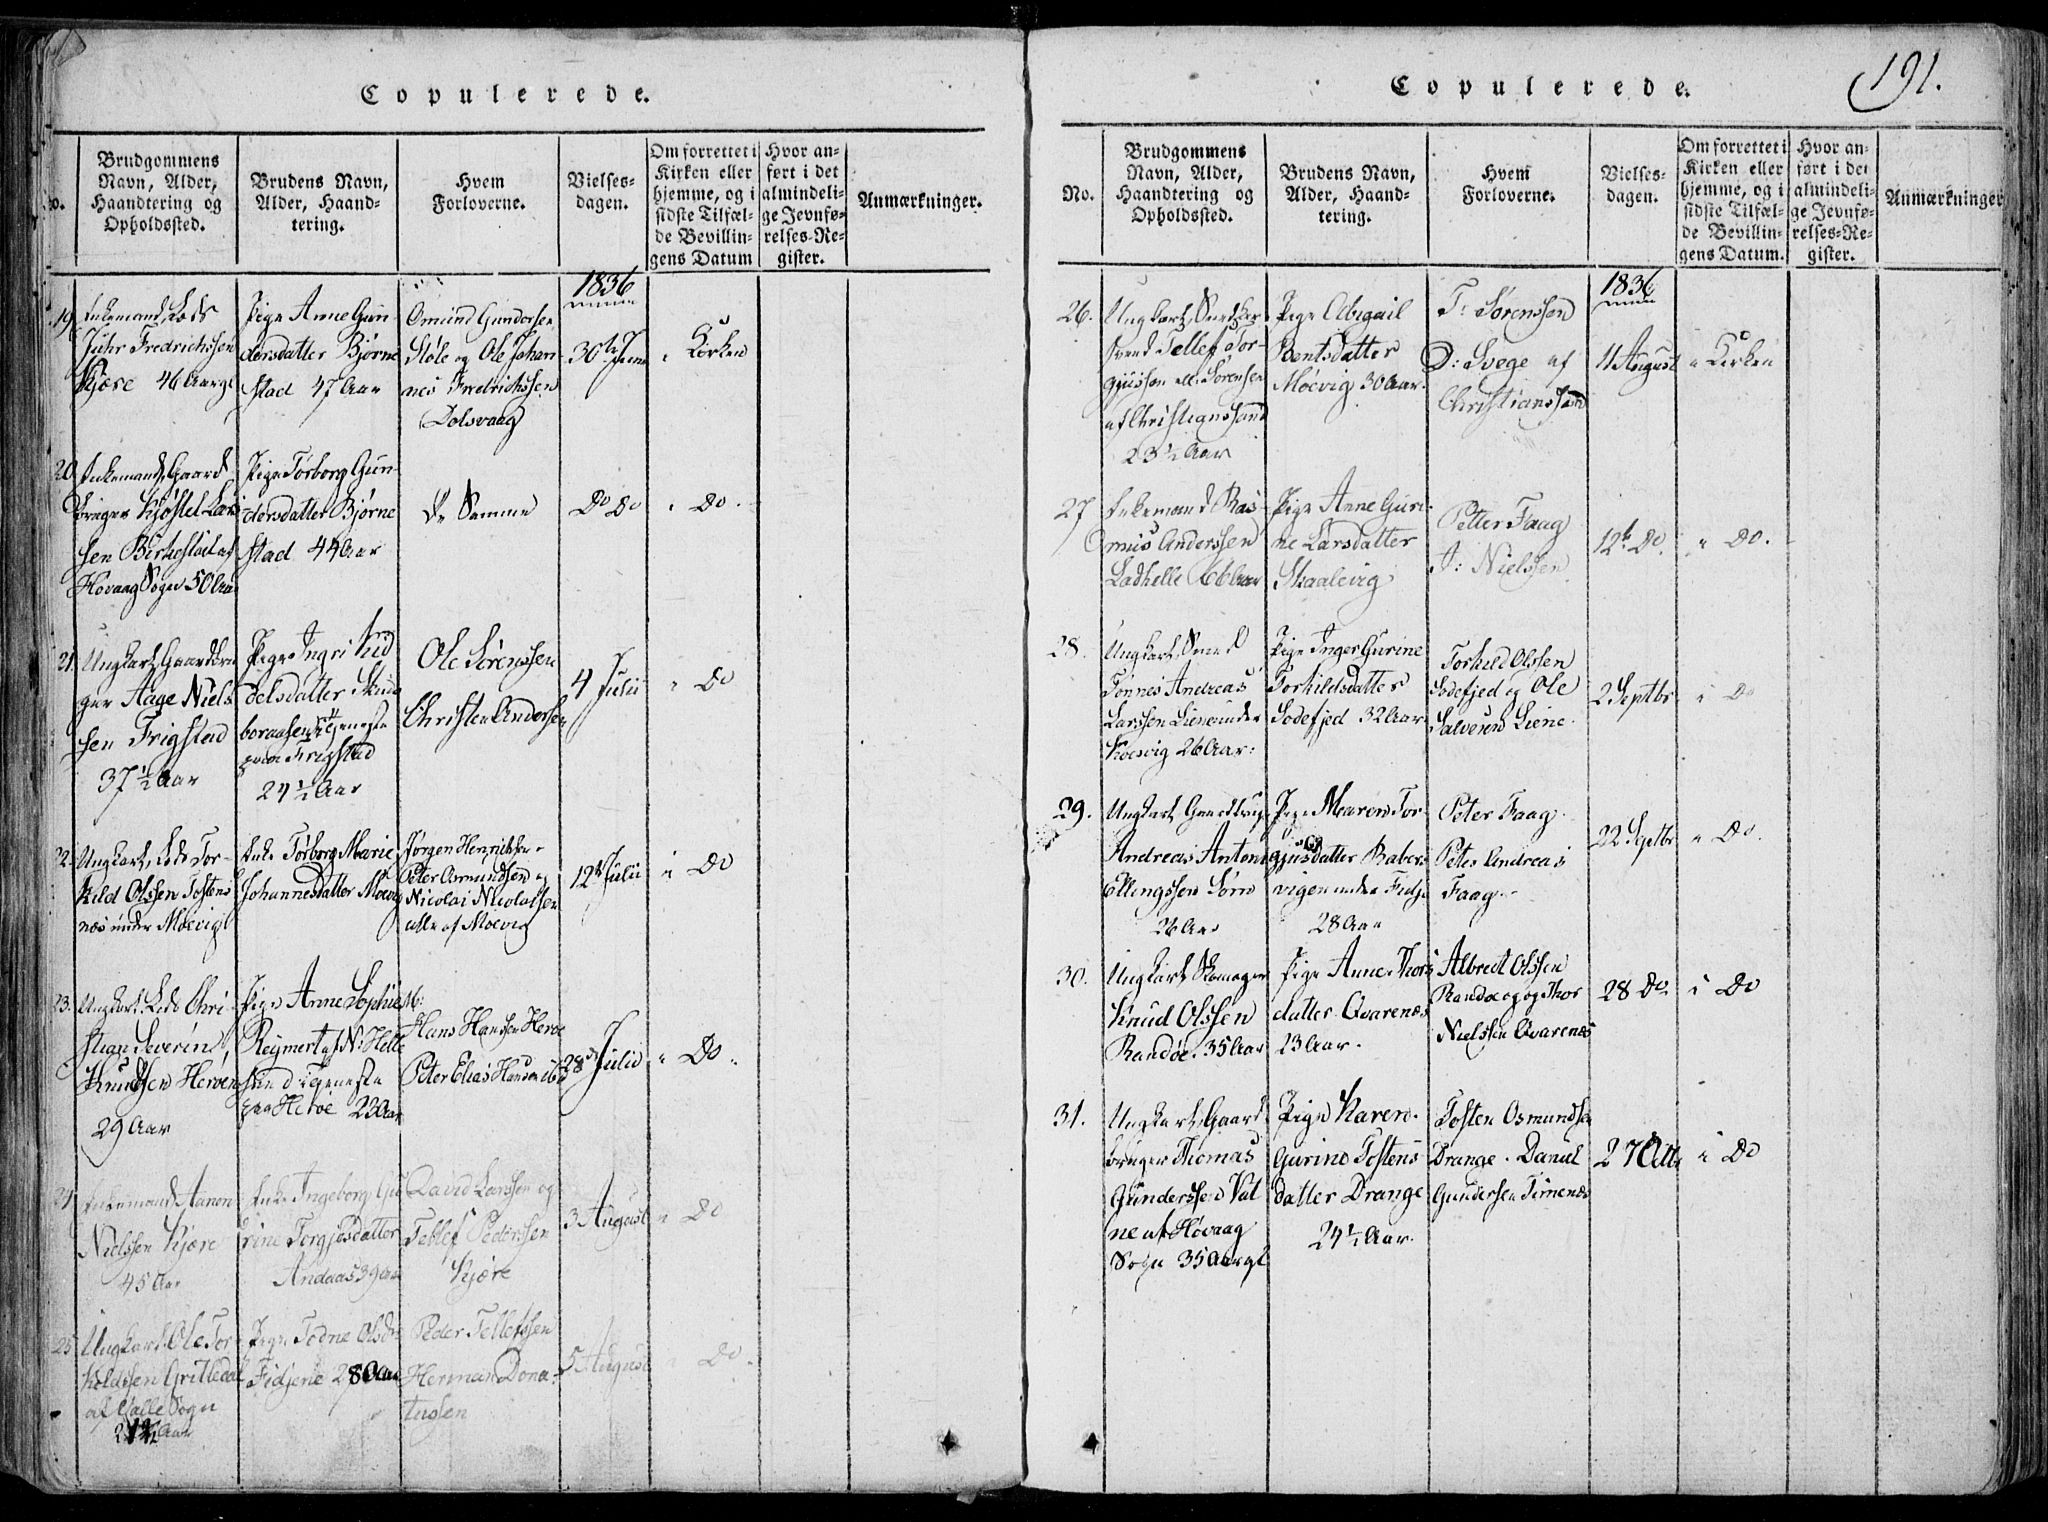 Copulerede.
No.
Brudgommens
Navn, Alder,
Haandtering og
Opholdssted.
Brudens Navn,
Alder, Haand-
tering.
Hvem
Forloverne.
Vielses-
dagen.
Om forrettet i
Kirken eller
hjemme, og i
sidste Tilfæl-
de Bevillin-
gens Datum
Hvor an-
ført i det
almindeli-
ge Jevnfø-
relses-Re-
gister.
Anmærkninger.
1836
19.
Enkemand, Lods
Fredrichssen
Kjære 46 Aar
Pige Anne Gun-
dersdatter Bjørne
stad 47 Aar
Omund Gundersen
Støle og Ole Johan
nes Fredrichssen
Dolsvaag
30te Junii
i Kirken
20.
Enkemand, Gaard
bruger Kjøstel Lar
sen Birkestøl af
Høvaag Sogn 50 Aar
Pige Torborg Gun-
dersdatter Bjørne
stad 44 Aar
De Samme
Do Do
i Do.
21.
Ungkarl, Gaardbru
ger Aage Niels
sen Frigstad
37½ Aar
Pige Ingri Kid
delsdatter
tjeneste
paa Frigstad
24½ Aar
Ole Sørenssen
Christen Andersen
4 Julii
i Do
22.
Ungkarl, Lods Tor-
kild Olssen Tostens
næs under Moevig
Enke Torborg Marie
Johannesdatter Moevig
Jørgen Henrichsen
Peter Osmundsen og
Nicolai Nicolaisen
alle af Moevig
12te Julii
i Do
23.
Ungkarl, Lods Chri
stian Severin
Knudsen Herøen
29 Aar
Pige Anne Sophie
Reymert af N: Helle
sund i tjeneste
paa Herøe 23 Aar
Hans Hansen Herøe
Peter Elias Hansen ibd
28de Julii
i Do.
24
Enkemand Aanon
Nielssen Kjære
45 Aar
Enke Ingeborg Gu
rine Torgjusdatter
Andaas 39 Aar
David Larssen og
Tellef Pederssen
Kjære
3 August
i Do
25
Ungkarl Ole Tor
kildssen Grittedal
af Valle Sogn
Aar
Pige Todne Olsdr
Fidjene 28 Aar
Peder Tellefssen
Herman Dona-
tussen
5 August
i Do.
Copulerede.
191.
No.
Brudgommens
Navn, Alder,
Haandtering og
Opholdssted.
Brudens Navn,
Alder, Haand-
tering.
Hvem
Forloverne.
Vielses-
dagen.
Om forrettet i
Kirken eller
hjemme, og i
sidste Tilfæl-
de Bevillin-
gens Datum.
Hvor an-
ført i det
almindeli-
ge Jevnfø-
relses-Re-
gister.
Anmærkninger
1836
26.
Ungkarl, Snedker
Svend Tellef Tor-
gjussen ell: Sørensen
af Christianssand
23½ Aar
Pige Abigail
Bentsdatter
Moevig 30 Aar.
T: Sørenssen
D: Svege af
Christianssand
11 August
i Kirken
27
Enkemand Ras-
mus Anderssen
Ladhelle 66 Aar
Pige Anne Guri-
ne Larsdatter
Skaalevig
Petter Faag
A: Nielssen
12te Do.
i Do.
28.
Ungkarl, Smed
Tønnes Andreas
Larssen Liene under
Kosvig 26 Aar.
Pige Inger Gurine
Torkildsdatter
Sodefjed 32 Aar
Torkild Olssen
Sodefjed og Ole
Salvesen Liene.
2 Septbr
i Do
29.
Ungkarl, Gaardbrug
Andreas Anton
Ellingssen Sørn
26 Aar
Pige Maren Tor-
gjusdatter Baber
vigen under Fidje
28 Aar
Peter Faag
Peter Andreas
Faag
22 Septbr
i Do.
30.
Ungkarl, Skomager
Knud Olssen
Randøe. 35 Aar
Pige Anne Thors
datter Qvarenæs
23 Aar.
Albret Olssen
Randøe og og Thor
Nielssen Qvarenæs
28 Do
i Do
31.
Ungkarl, Gaard
bruger Thomas
Gunderssen Val
ne af Høvaag
Sogn 35 Aar
Pige Karen
Gurine Tostens
datter Drange
24½ Aar.
Tosten Osmundsen
Drange. Daniel
Gundersen Timenæs
27 Octbr
i Do